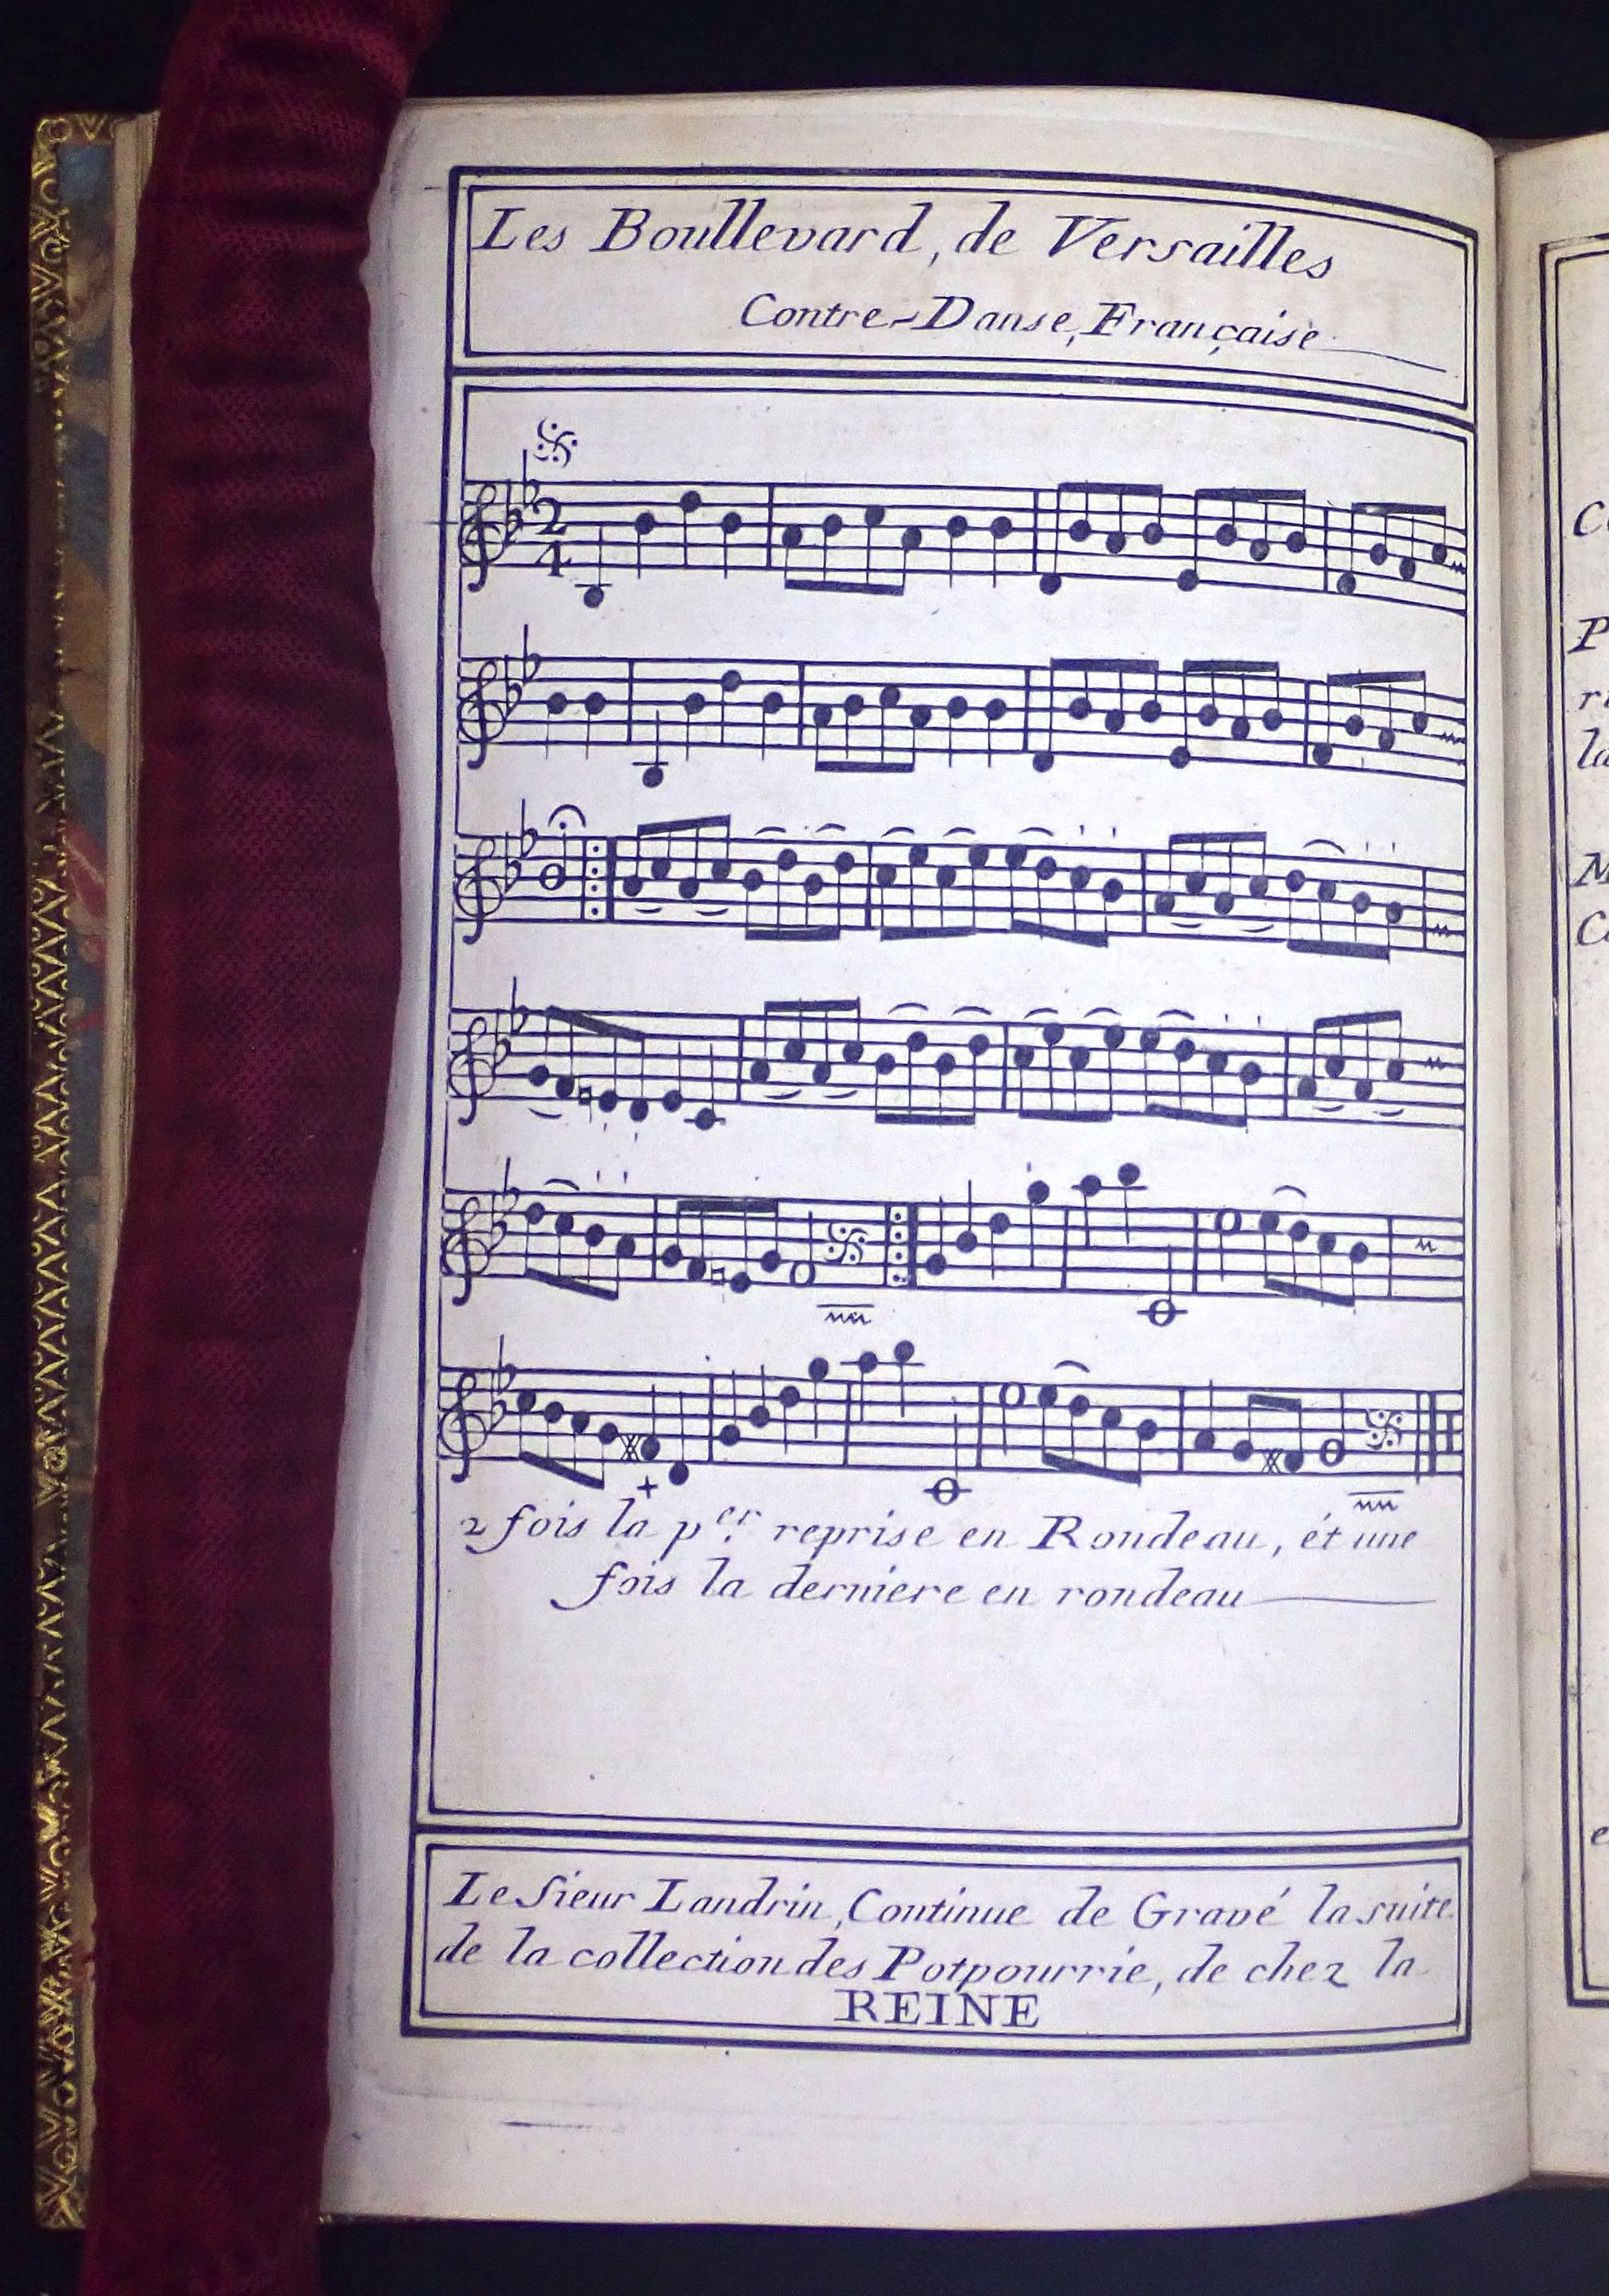 Les Boullevard, de Versailles
Contre-Danse, Française
2
4
2 fois la p.er reprise en Rondeau, ét une
fois la derniere en rondeau
Le Sieur Landrin, Continue de Gravé la suite
de la collection des Potpourrie, de chez la
REINE